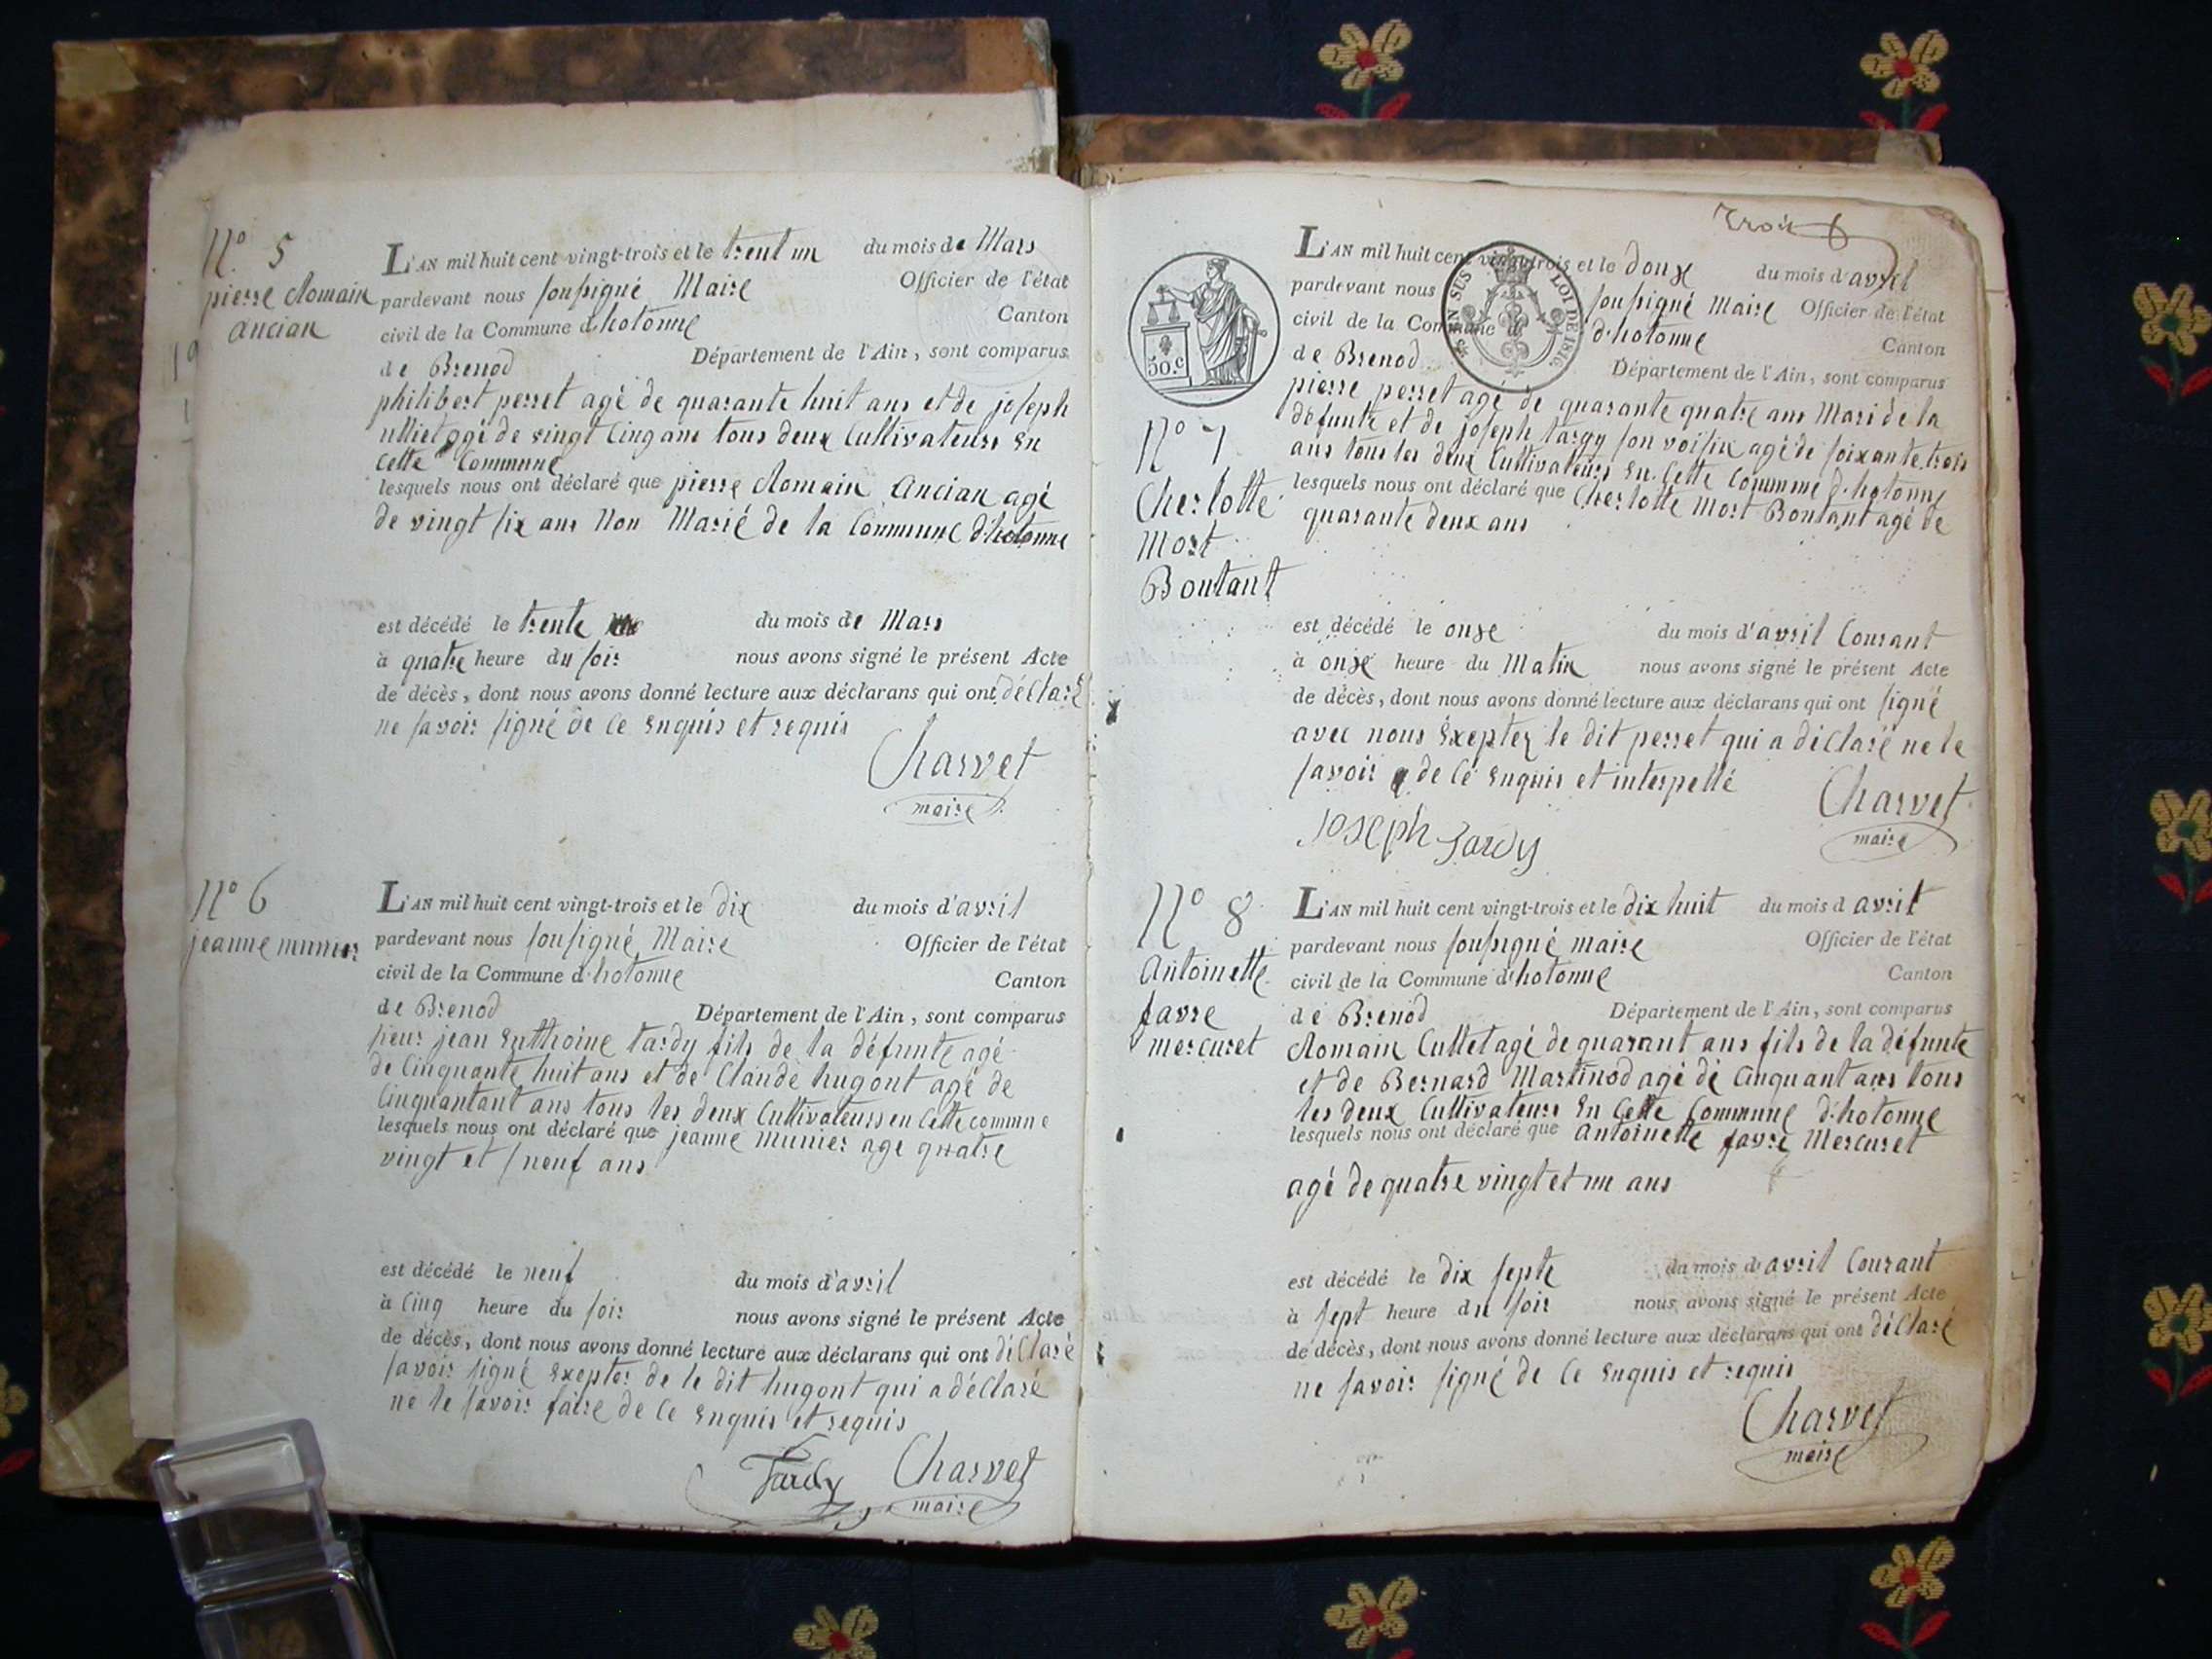 N° 5
pierre Romain
ancian
L'AN mil huit cent vingt-trois et le trent un du mois de Mars
pardevant nous soussigné Maire Officier de l'état
civil de la Commune d'hotonne Canton
de Brenod Département de l'Ain, sont comparus
philibert perret agé de quarante huit ans et de joseph
ulliet agé de vingt cinq ans tous deux Cultivateurs En
cette Commune
lesquels nous ont déclaré que pierre Romain Ancian agé
de vingt six ans Non Marié de la Commune d'hotonne
est décédé le trente du mois de Mars
à quatre heure du soir nous avons signé le présent Acte
de décès, dont nous avons donné lecture aux déclarans qui ont déclaré
ne savoir signé de ce Enquis et requis
Charvet
maire
N° 6
jeanne munier
L'AN mil huit cent vingt-trois et le dix du mois d'avril
pardevant nous soussigné Maire Officier de l'état
civil de la Commune d'hotonne Canton
de Brenod Département de l'Ain, sont comparus
sieur jean Enthoine tardy fils de la défunte agé
de Cinquante huit ans et de Claude hugont agé de
Cinquantant ans tous les deux Cultivateurs en Cette commune
lesquels nous ont déclaré que jeanne Munier age quatre
vingt et neuf ans
est décédé le neuf du mois d'avril
à Cinq heure du soir nous avons signé le présent Acte
de décès, dont nous avons donné lecture aux déclarans qui ont déClaré
savoir signé Exepter de le dit hugont qui a déClaré
ne le savoir faire de Ce Enquis et requis
Tardy Charvet
maire
Trois
50.c
EN SUS LOI DE 1816
L'AN mil huit cent vingt-trois et le douse du mois d'avril
pardevant nous soussigné Maire Officier de l'état
civil de la Commune d'hotonne Canton
de Brenod Département de l'Ain, sont comparus
pierre perret agé de quarante quatre ans Mari de la
défunte et de joseph tardy son voisin agé de soixante trois
ans tous les deux Cultivateurs En Cette Commune d'hotonne
N° 7
Cherlotte
Mort
Boutant
lesquels nous ont déclaré que Cherlotte Mort Boutant agé de
quarante deux ans
est décédé le onse du mois d'avril Courant
à onse heure du Matin nous avons signé le présent Acte
de décès, dont nous avons donné lecture aux déclarans qui ont signé
avec nous Exepter le dit perret qui a déClaré ne le
savoir de Cé Enquis et interpellé
Charvet
maire
Joseph Tardy
N° 8
Antoinette
favre
mercuret
L'AN mil huit cent vingt-trois et le dix huit du mois d avril
pardevant nous soussigné maire Officier de l'état
civil de la Commune d'hotonne Canton
de Brenod Département de l'Ain, sont comparus
Romain Cullet agé de quarant ans fils de la défunte
et de Bernard Martinod agé de Cinquant ans tous
les deux Cultivateurs En Cette Commune d'hotonne
lesquels nous ont déclaré que Antoinette favre Mercuret
agé de quatre vingt et un ans
est décédé le dix septe du mois d'avril Courant
à sept heure du soir nous avons signé le présent Acte
de décès, dont nous avons donné lecture aux déclarans qui ont déClaré
ne savoir signé de Ce Enquis et requis
Charvet
maire